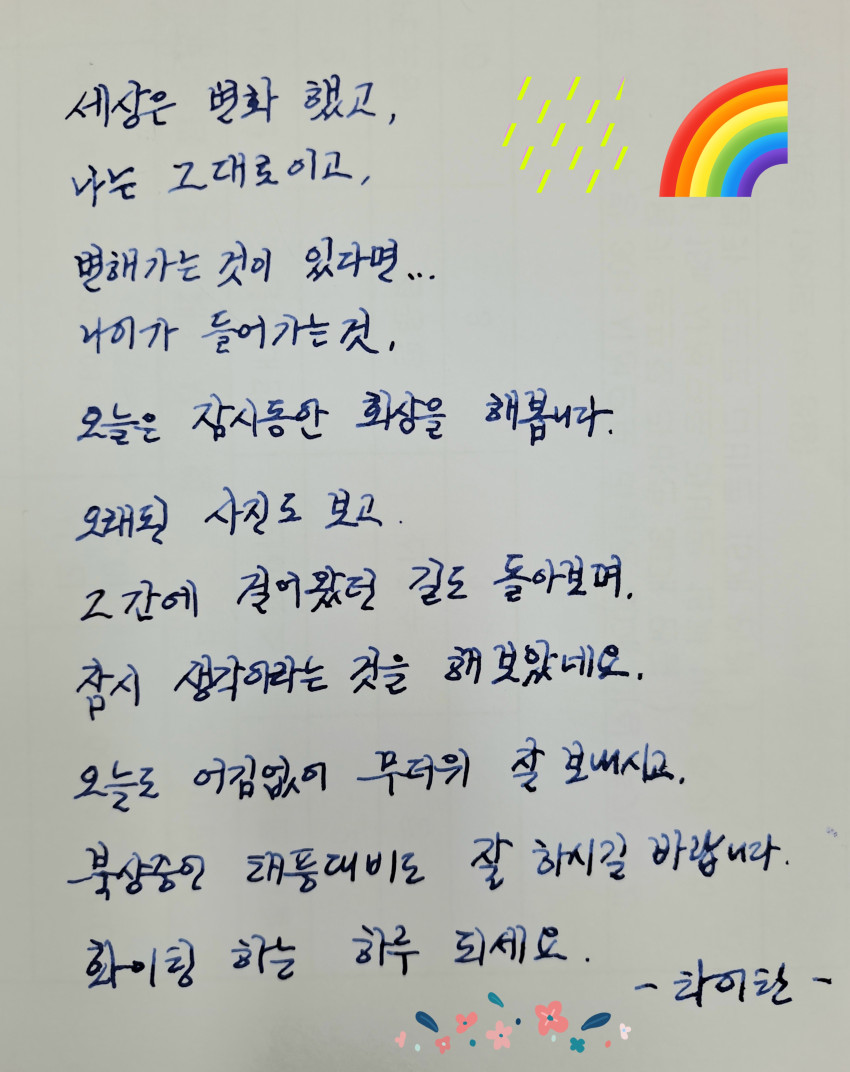 세상은 변화 했고,
나는 그대로이고,
변해가는 것이 있다면...
나이가 들어가는 것.
오늘은 잠시동안 회상을 해봅니다.
오래된 사진도 보고.
그간에 걸어왔던 길도 돌아보며.
잠시 생각이라는 것을 해보았네요.
오늘도 어김없이 무더위 잘 보내시고.
북상중인 태풍대비도 잘 하시길 바랍니다.
화이팅 하는 하루 되세요.
- 타이탄 -